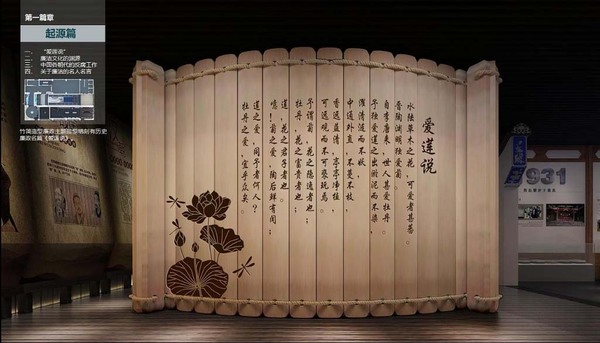 第一篇章
起源篇
一、 "爱莲说"
二、 廉洁文化的渊源
三、 中国各朝代的反腐工作
四、 关于廉洁的名人名言
竹简造型廉政主题造型镌刻有历史
廉政名篇《爱莲说》
爱莲说
水陆草木之花，可爱者甚蕃。
晋陶渊明独爱菊。
自李唐来，世人甚爱牡丹
予独爱莲之出淤泥而不染，
濯清涟而不妖，
中通外直，不蔓不枝，
香远益清，亭亭净植，
可远观而不可亵玩焉。
予谓菊，花之隐逸者也；
牡丹，花之富贵者也；
莲，花之君子者也。
噫！菊之爱，陶后鲜有闻；
莲之爱，同予者何人？
牡丹之爱，宜乎众矣。
931